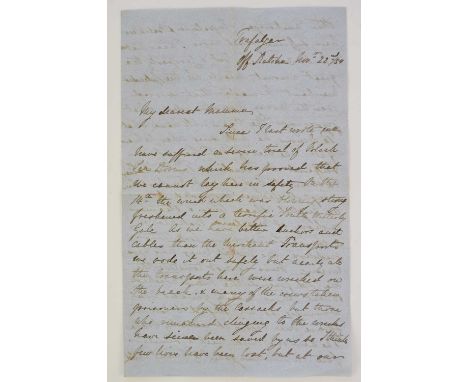 Trafalgar
off Katcha Nov.r 22nd/54
My dearest Mamma,
Since I last wrote we
have suffered a severe trial of Black
Sea Storms which has proved that
we cannot lay here in safety On the
14th the wind which was strong
freshened into a terrific South Westerly
Gale As we have better Anchors and
Cables than the Merchant Transports
we rode it out safely but nearly all
the transports here were wrecked on
the beach & many of the crews taken
prisoners by the Cossacks but those
who remained clinging to the wrecks
have since been saved by us so I think
few lives have been lost, but at our